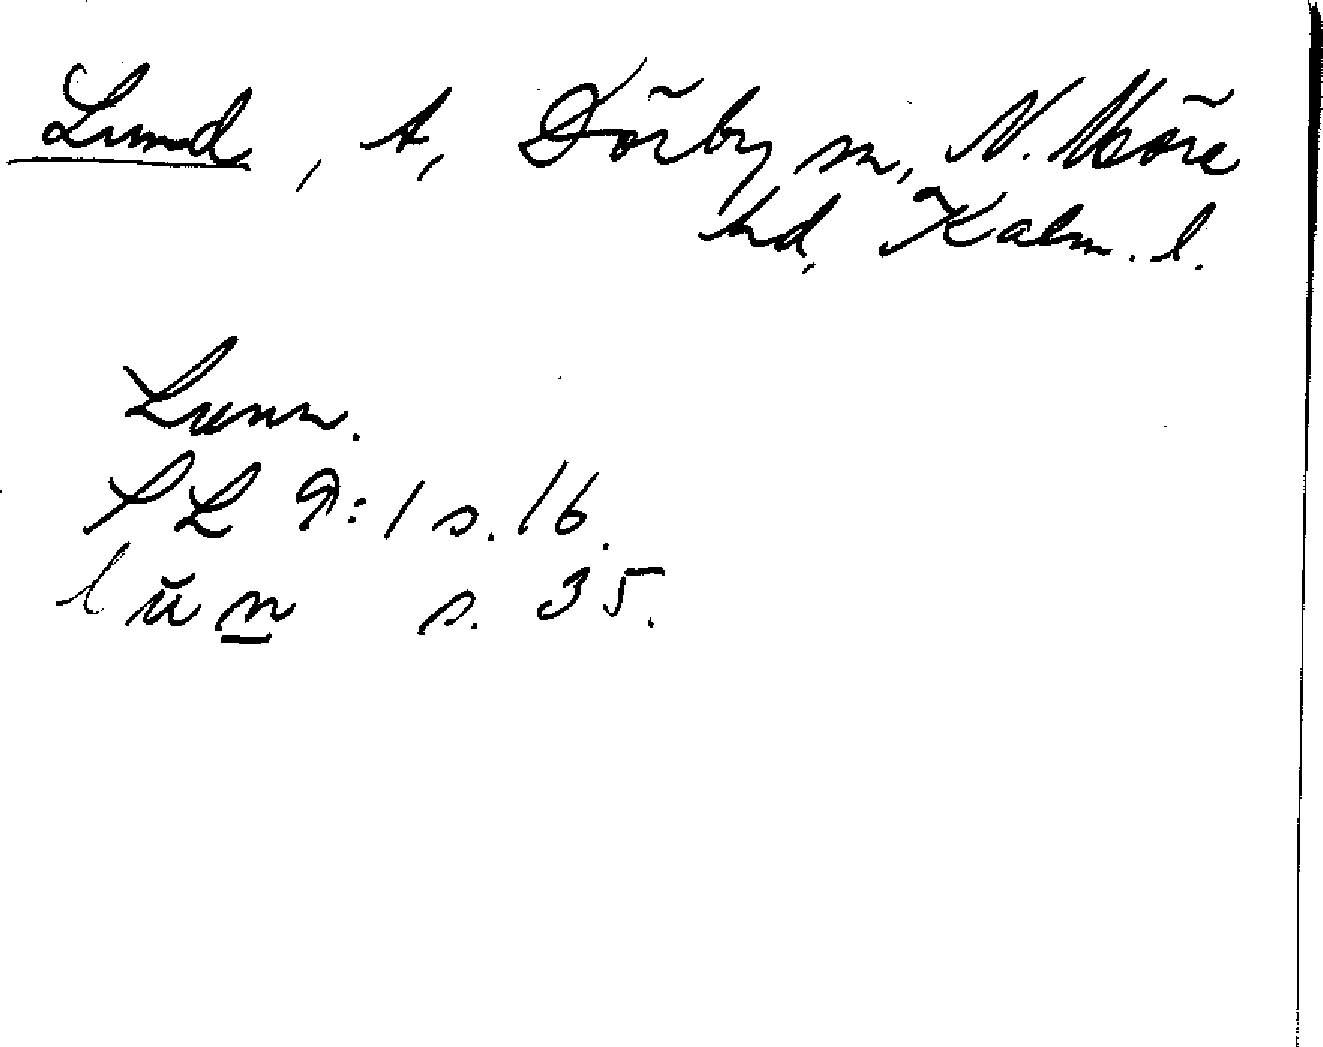 Lund, t, Dörby sn, N. Möre
hd, Kalm. l.
Lunn.
SL 9:1 s. 16.
lŭn s. 35.